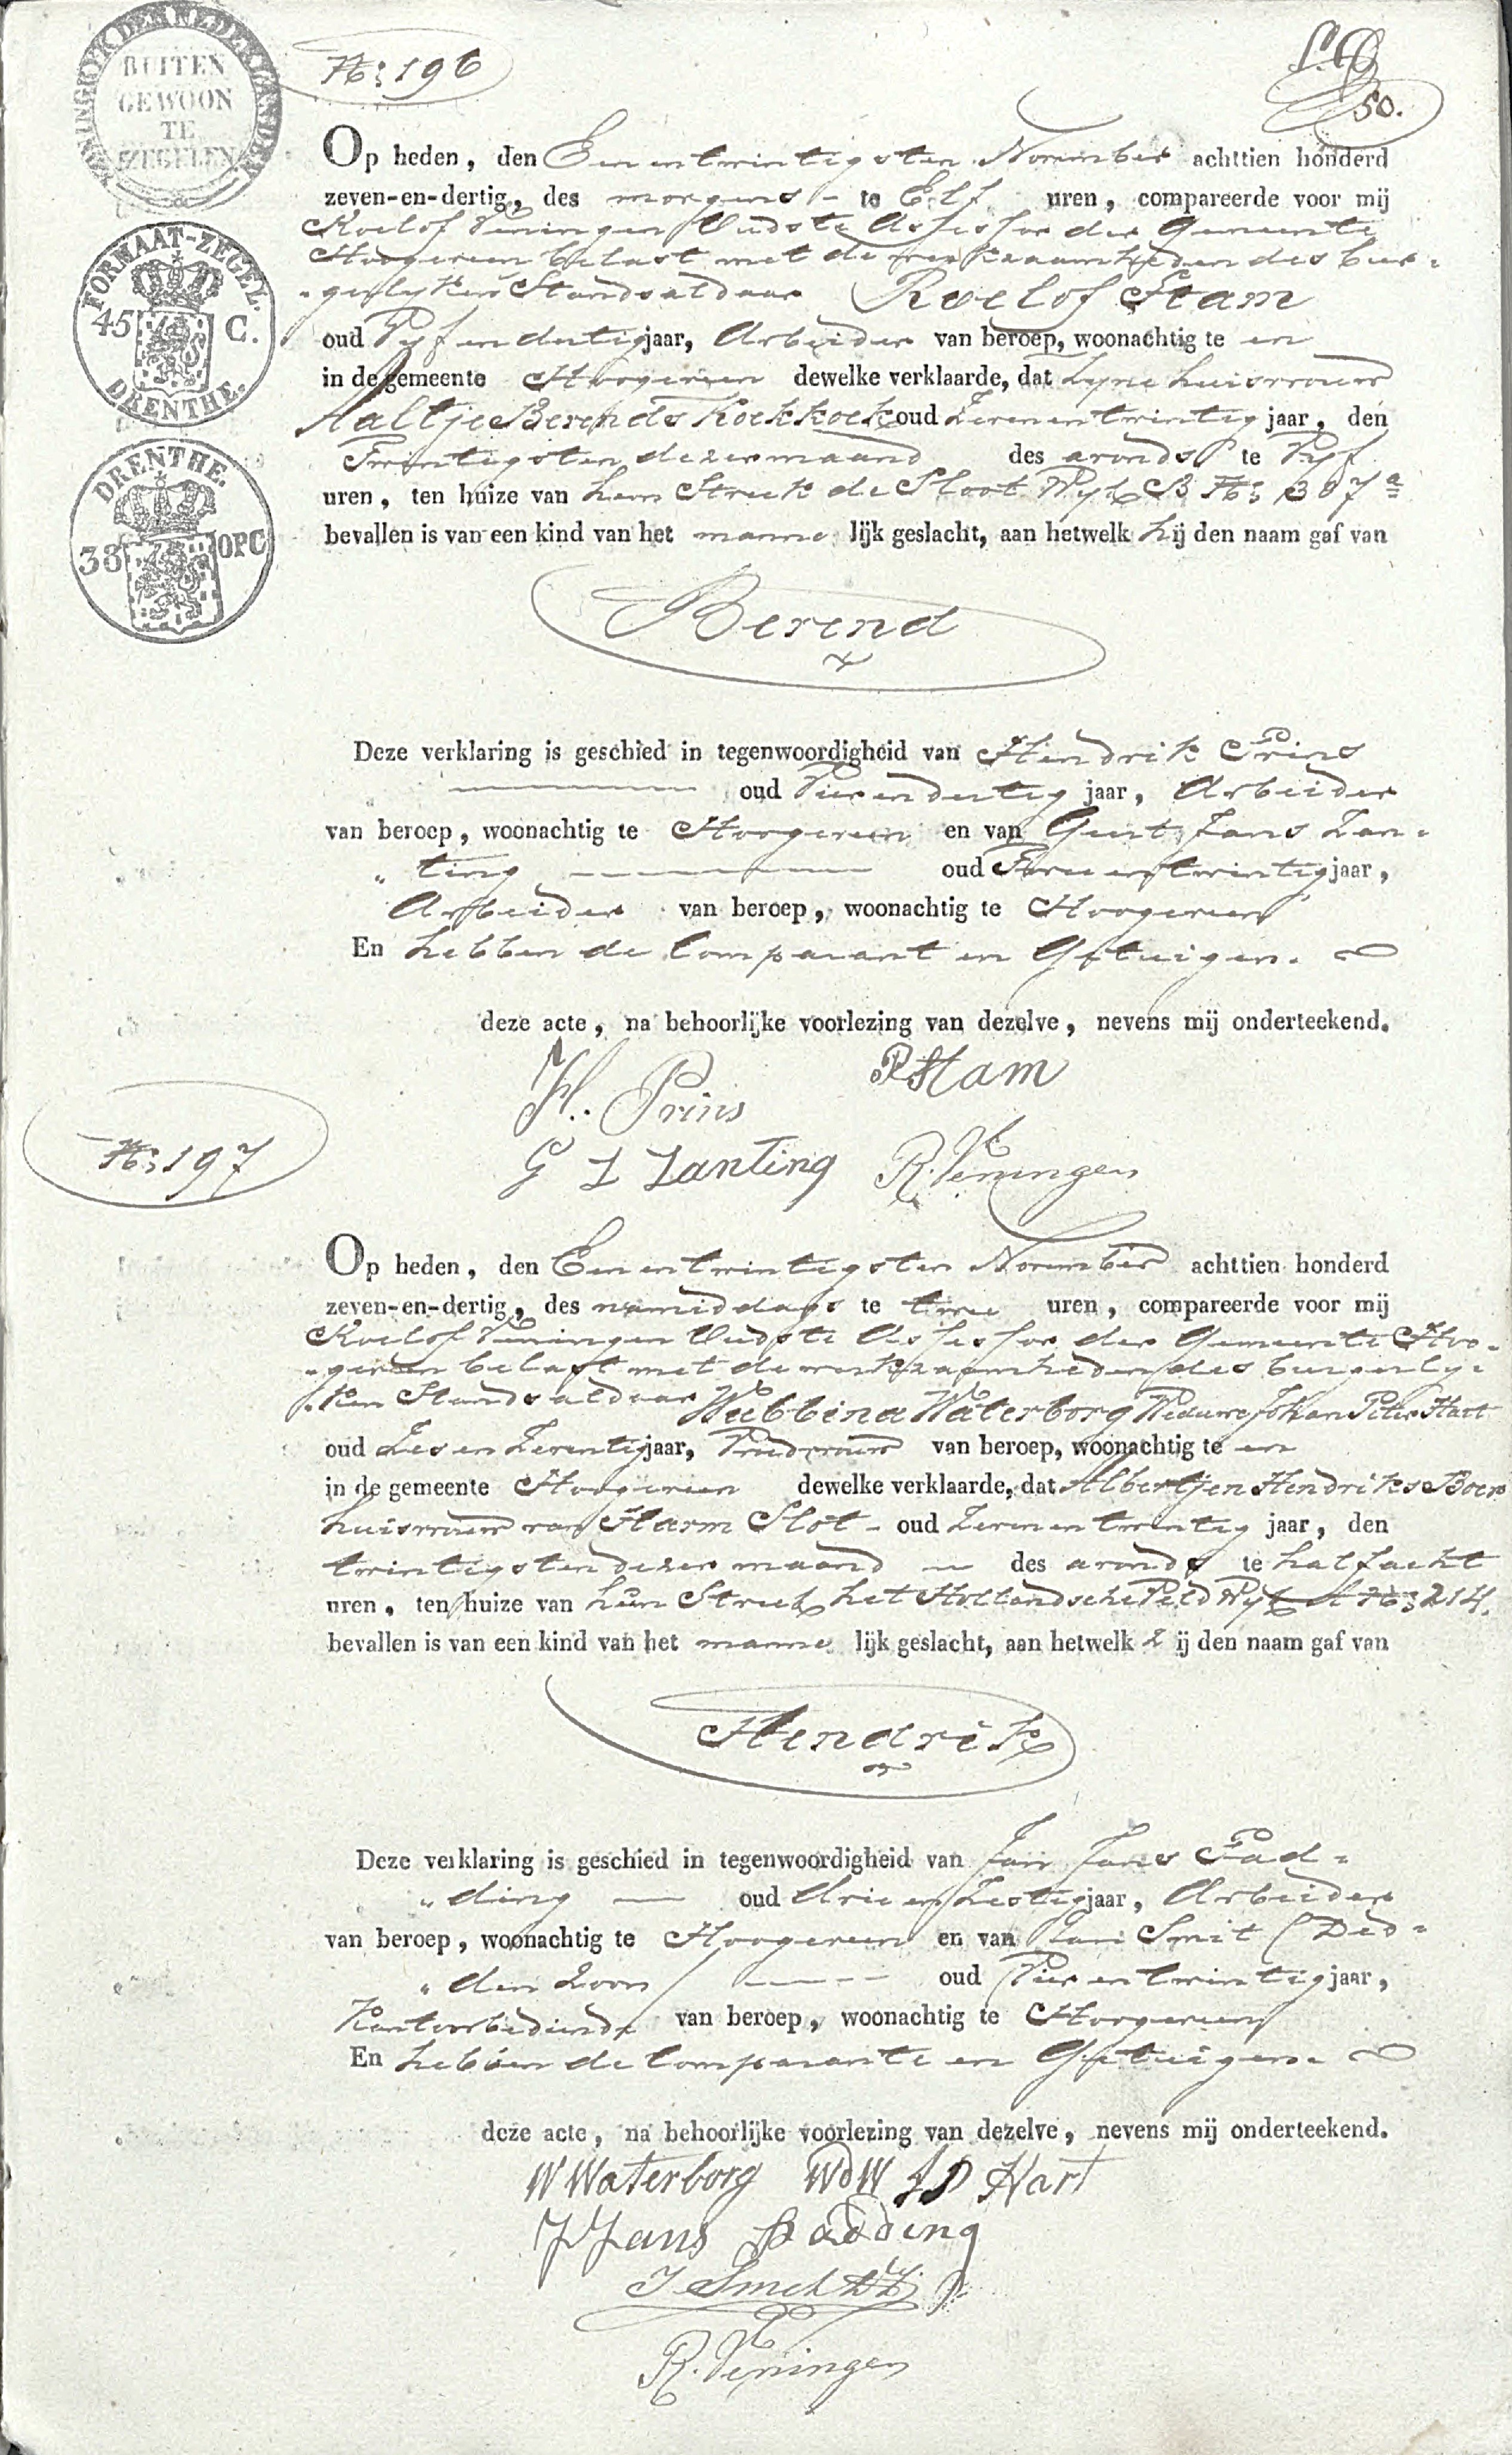 KONINGRYK DER NEDERLANDEN
BUITEN
GEWOON
TE
ZEGELEN
No: 196
50.
Op heden, den Een en twintigsten November achttien honderd
zeven-en-dertig, des morgens - te Elf uren, compareerde voor mij
Roelof Veningen Oudste Assessor der Gemeente
Hoogeveen belast met de werkzaamheden des bur=
"gerlyken Stands aldaar Roelof Stam
FORMAAT-ZEGEL.
45 C.
DRENTHE.
oud Vyf en dertig jaar, Arbeider van beroep, woonachtig te en
in de gemeente Hoogeveen dewelke verklaarde, dat Zyne huisvrouw
Aaltje Berends Koekkoek oud Zeven en twintig jaar, den
Twintigsten dezer maand des avonds te Vyf
DRENTHE.
38 OPC
uren, ten huize van hem Streek de Sloot Wyk B No: 307a
bevallen is van een kind van het manne lijk geslacht, aan hetwelk hij den naam gaf van
Berend
Deze verklaring is geschied in tegenwoordigheid van Hendrik Prins
oud Vier en dertig jaar, Arbeider
van beroep, woonachtig te Hoogeveen en van Geert Jans Zan=
"ting oud Twee en twintig jaar,
Arbeider van beroep, woonachtig te Hoogeveen
En hebben de Comparant en Getuigen.
deze acte, na behoorlijke voorlezing van dezelve, nevens mij onderteekend.
R Stam
H. Prins
G J Zanting R. Veningen
No: 197
Op heden, den Een en twintigsten November achttien honderd
zeven-en-dertig, des namiddags te twee uren, compareerde voor mij
Roelof Veningen Oudste Assessor der Gemeente Hoo=
"geveen belast met de werkzaamheden des burgerly=
"ken Stands aldaar Wubbina Waterborg Weduwe Johan Peter Hart
oud Zes en Zeventig jaar, Vroedvrouw van beroep, woonachtig te en
in de gemeente Hoogeveen dewelke verklaarde, dat Albertjen Hendriks Boer
huisvrouw van Harm Slot - oud Zeven en twintig jaar, den
twintigsten dezer maand des avonds te half acht
uren, ten huize van hun Streek het Hollandsche Veld Wyk A No: 214.
bevallen is van een kind van het manne lijk geslacht, aan hetwelk Z ij den naam gaf van
Hendrik
Deze verklaring is geschied in tegenwoordigheid van Jan Jans Pad=
"ding oud drie en Zestig jaar, Arbeider
van beroep, woonachtig te Hoogeveen en van Jan Smit (Ded=
"den Zoon) oud Vier en twintig jaar,
Kantoorbediende van beroep, woonachtig te Hoogeveen
En hebben de Comparante en Getuigen.
deze acte, na behoorlijke voorlezing van dezelve, nevens mij onderteekend.
W Waterborg WdW J P Hart
J Jans Padding
J Smit DZ
R. Veningen